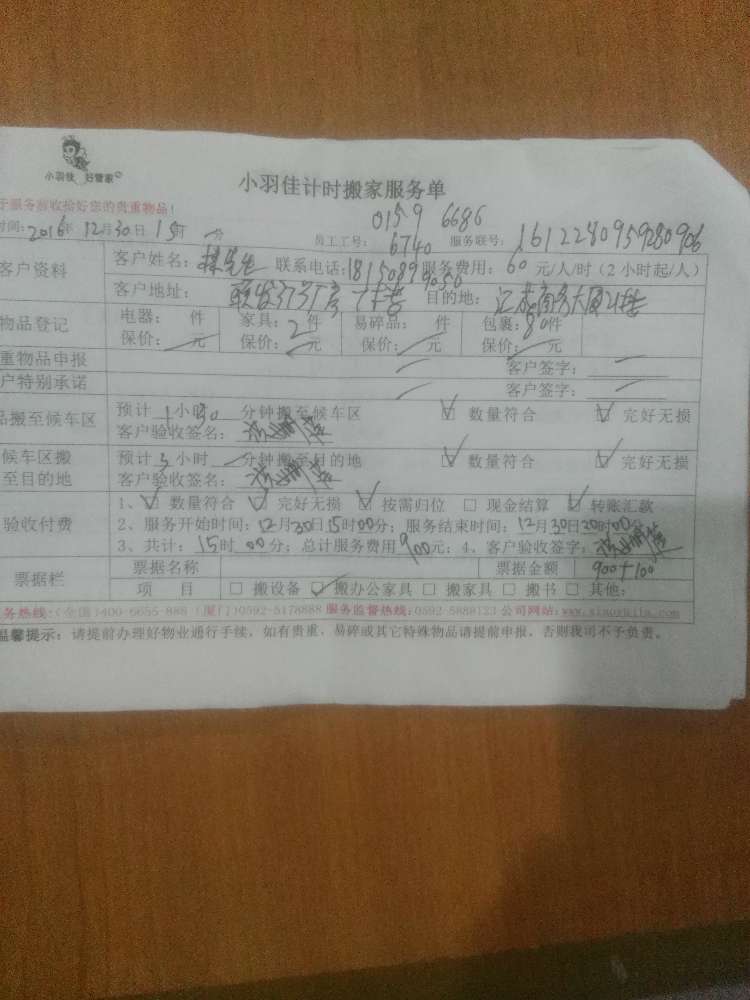 小羽佳 好管家
小羽佳计时搬家服务单
服务验收拾好您的贵重物品!
时间: 2016年 12月30日 15时 分
员工工号: 0159 6686 6740 服务联号: 1612280959280906
客户资料 客户姓名: 先生 联系电话: 服务费用: 60 元/人/时(2小时起/人)
客户地址: 目的地:
物品登记 电器: 件 家具: 2件 易碎品: 件 包裹: 80件
保价: 元 保价: 元 保价: 元 保价: 元
重物品申报 客户签字:
户特别承诺 客户签字:
品搬至候车区 预计 1小时30 分钟搬至候车区 ☑ 数量符合 ☑ 完好无损
客户验收签名:
候车区搬至目的地 预计3小时 分钟搬至目的地 ☑ 数量符合 ☑ 完好无损
客户验收签名:
验收付费 1、☑ 数量符合 ☑ 完好无损 ☑ 按需归位 □ 现金结算 ☑ 转账汇款
2、服务开始时间: 12月30日15时00分; 服务结束时间: 12月30日20时00分
3、共计: 15时 00分; 总计服务费用900元; 4、客户验收签字:
票据栏 票据名称 票据金额 900+100
项 目 □ 搬设备 ☑ 搬办公家具 □ 搬家具 □ 搬书 □ 其他:
务热线:(全国)400-6655-888 (厦门)0592-5178888 服务监督热线:0592-5888123 公司网站:
温馨提示: 请提前办理好物业通行手续, 如有贵重、易碎或其它特殊物品请提前申报, 否则我司不予负责。